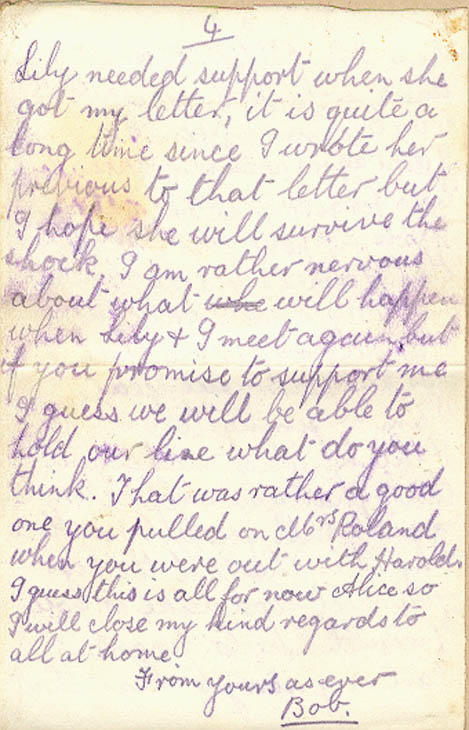 4
Lily needed support when she
got my letter, it is quite a
long time since I wrote her
previous to that letter but
I hope she will survive the
shock. I am rather nervous
about what will happen
when Lily & I meet again, but
if you promise to support me
I guess we will be able to
hold our line what do you
think. That was rather a good
one you pulled on Mrs Roland
when you were out with Harold.
I guess this is all for now Alice so
I will close my kind regards to
all at home.
From yours as ever
Bob.